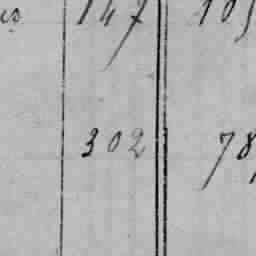 147 105
302 78